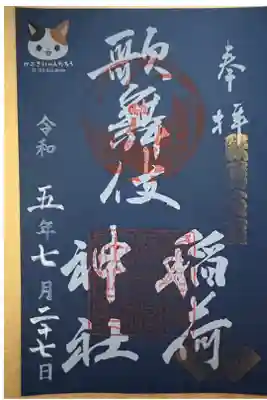 奉拝
歌舞伎
稲荷
神社
令和五年七月二十七日